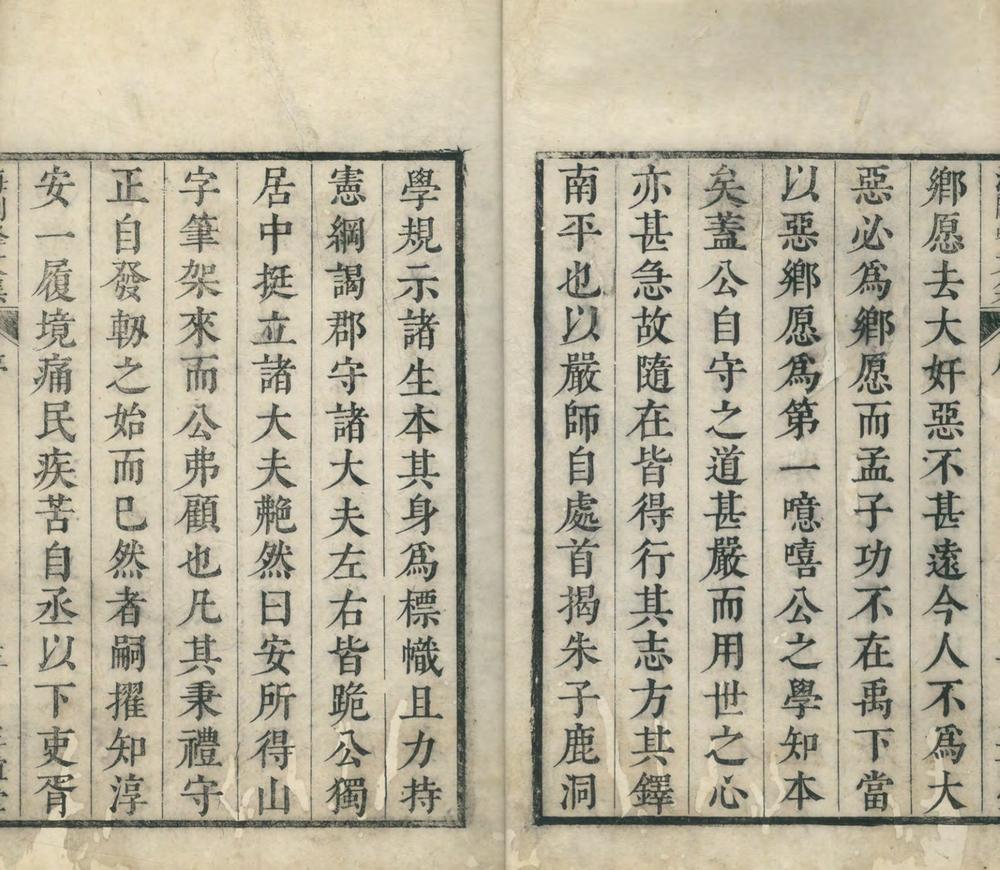 鄉愿去大奸惡不甚遠今人不爲大
惡必爲鄉愿而孟子功不在禹下當
以惡鄉愿爲第一噫嘻公之學知本
矣蓋公自守之道甚嚴而用世之心
亦甚急故隨在皆得行其志方其鐸
南平也以嚴師自處首揭朱子鹿洞
學規示諸生本其身爲標幟且力持
憲綱謁郡守諸大夫左右皆跪公獨
居中挺立諸大夫艴然曰安所得山
字筆架來而公弗顧也凡其秉禮守
正自發軔之始而已然者嗣擢知淳
安一履境痛民疾苦自丞以下吏胥